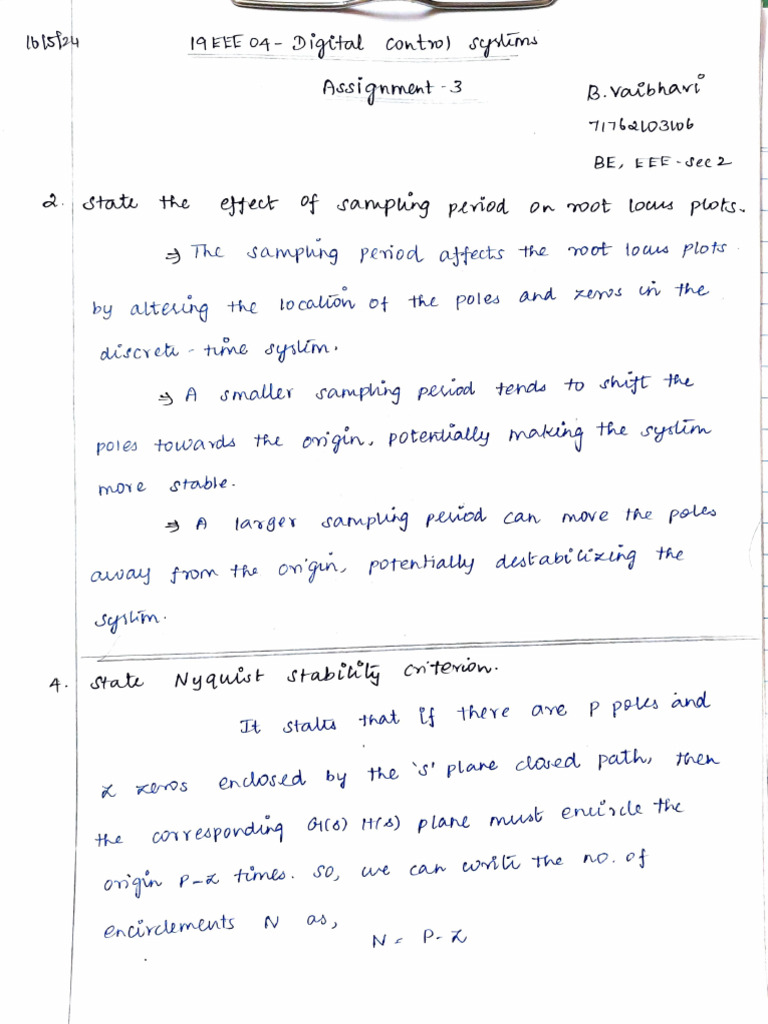 16/5/24
19EEE04 - Digital control systems
Assignment - 3
B. Vaibhavi
71762103106
BE, EEE - sec 2
2. State the effect of sampling period on root locus plots.
⇒ The sampling period affects the root locus plots
by altering the location of the poles and zeros in the
discrete - time system.
⇒ A smaller sampling period tends to shift the
poles towards the origin, potentially making the system
more stable.
⇒ A larger sampling period can move the poles
away from the origin, potentially destabilizing the
system.
4. State Nyquist stability criterion.
It states that if there are P poles and
Z zeros enclosed by the 's' plane closed path, then
the corresponding G(s) H(s) plane must encircle the
origin P-Z times. So, we can write the no. of
encirclements N as,
N = P - Z